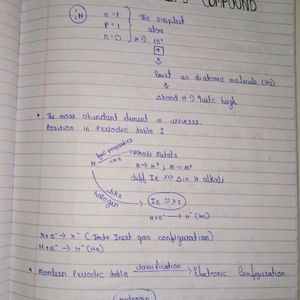 COMPOUND
₁H
e = 1
p = 1
n = 0
The simplest
atom
H ⇒ 1s¹
↑
Exist as diatomic molecule (H₂)
ΔbondH ⇒ quite high
• The most abundant element in universe
Position in Periodic table :
Alkali metals
like
H → H⁺ ; M → M⁺
diff IE >>> Δ in H alkali
H
like
halogen
IE ≃ XI
H + e⁻ → H⁻ (He)
X + e⁻ → X⁻ ( Inert gas configuration)
H + e⁻ → H⁻ (He)
• Mordern Periodic table classification → Electronic Configuration
Hydrogen